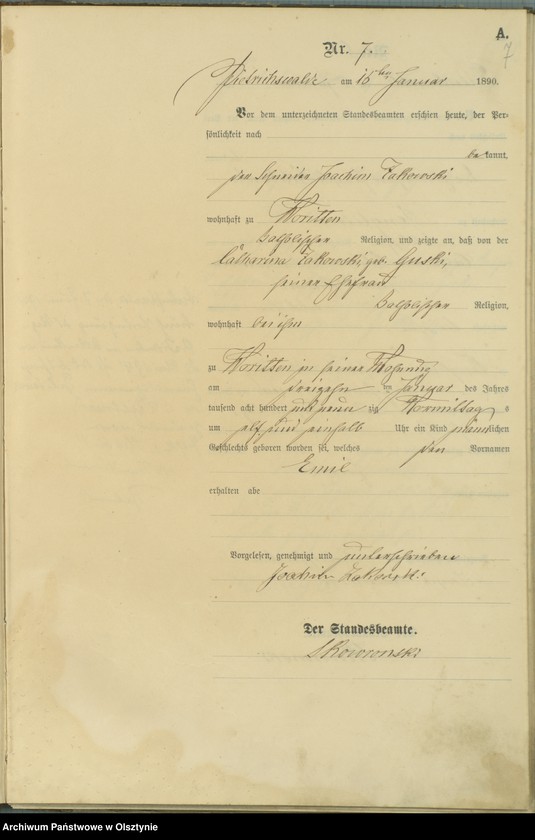 A.
7
Nr. 7.
Dietrichswalde am 16ten Januar 1890.
Vor dem unterzeichneten Standesbeamten erschien heute, der Per-
sönlichkeit nach
bekannt,
der Schneider Joachim Zakowski
wohnhaft zu Woritten
katholischer Religion, und zeigte an, daß von der
Catharina Zakowski, geb. Guski,
seiner Ehefrau
katholischer Religion,
wohnhaft bei ihm
zu Woritten in seiner Wohnung
am dreizehn ten Januar des Jahres
tausend acht hundert und neun zig Vormittag s
um elf und einhalb Uhr ein Kind männlichen
Geschlechts geboren worden sei, welches den Vornamen
Emil
erhalten habe
Vorgelesen, genehmigt und unterschrieben
Joachim Zakowski
Der Standesbeamte.
Skowronski
Archiwum Państwowe w Olsztynie